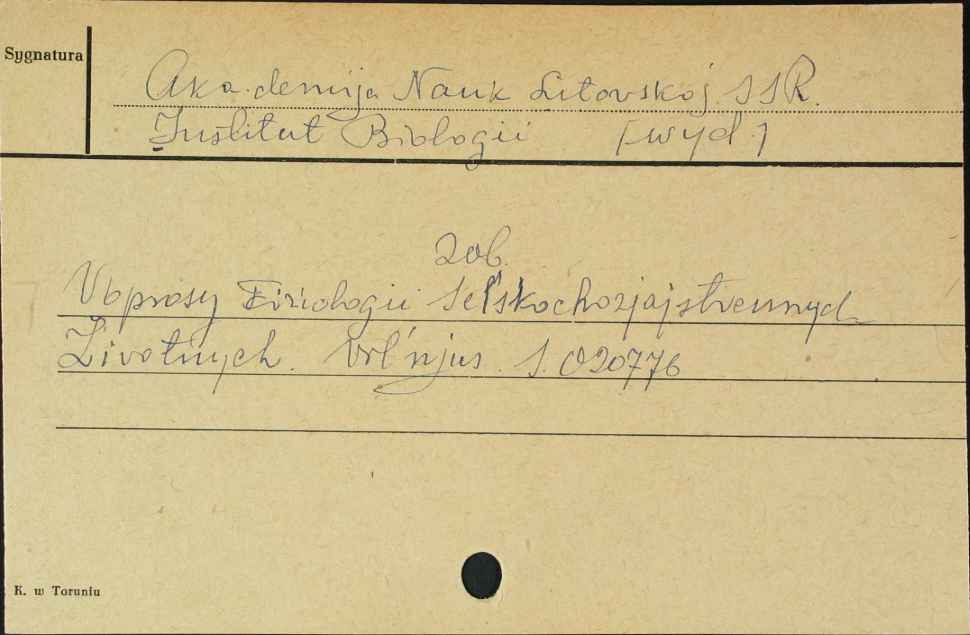 Sygnatura
Akademija Nauk Litovskoj SSR.
Institut Biologii [wyd.]
zob.
Voprosy Fiziologii Sel'skochozjajstvennych
Životnych. Vil'njus. S. 020776
K. w Toruniu